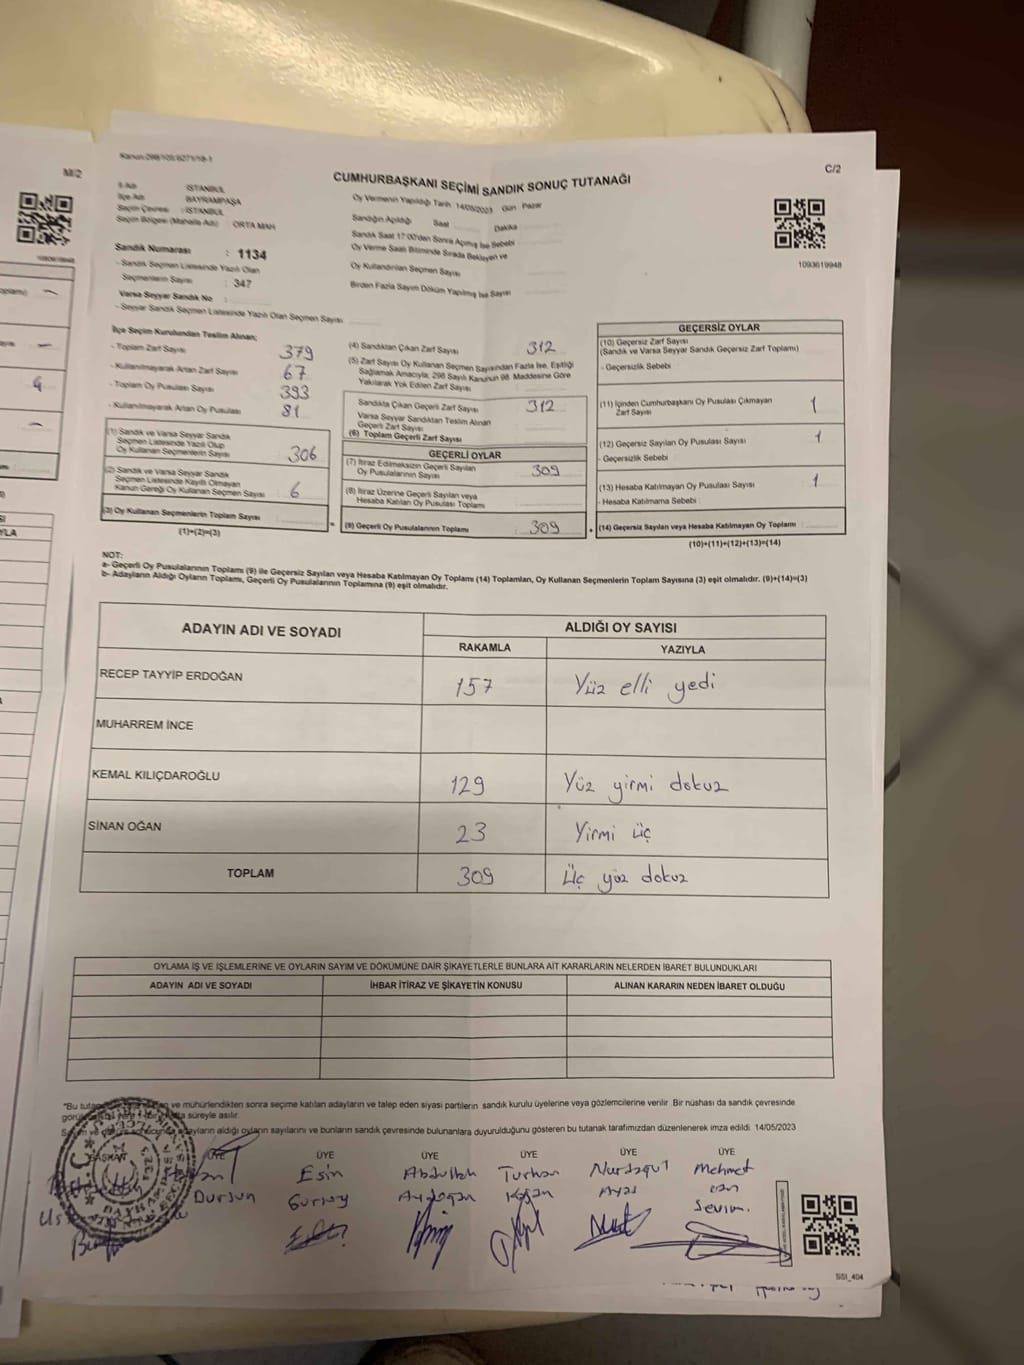 Kanun:298/105;6271/18-1
M/2
C/2
CUMHURBAŞKANI SEÇİMİ SANDIK SONUÇ TUTANAĞI
İl Adı : İSTANBUL
İlçe Adı : BAYRAMPAŞA
Seçim Çevresi : İSTANBUL
Seçim Bölgesi (Mahalle Adı) : ORTA MAH
Sandık Numarası : 1134
- Sandık Seçmen Listesinde Yazılı Olan
Seçmenlerin Sayısı : 347
Varsa Seyyar Sandık No :
- Seyyar Sandık Seçmen Listesinde Yazılı Olan Seçmen Sayısı
Oy Vermenin Yapıldığı Tarih 14/05/2023 Gün Pazar
Sandığın Açıldığı Saat Dakika
Sandık Saat 17:00'den Sonra Açılmış İse Sebebi
Oy Verme Saati Bitiminde Sırada Bekleyen ve
Oy Kullandırılan Seçmen Sayısı
Birden Fazla Sayım Döküm Yapılmış İse Sayısı
1093619948
İlçe Seçim Kurulundan Teslim Alınan;
- Toplam Zarf Sayısı 379
- Kullanılmayarak Artan Zarf Sayısı 67
- Toplam Oy Pusulası Sayısı 393
- Kullanılmayarak Artan Oy Pusulası 81
(1) Sandık ve Varsa Seyyar Sandık
Seçmen Listesinde Yazılı Olup
Oy Kullanan Seçmenlerin Sayısı 306
(2) Sandık ve Varsa Seyyar Sandık
Seçmen Listesinde Kayıtlı Olmayan
Kanun Gereği Oy Kullanan Seçmen Sayısı 6
(3) Oy Kullanan Seçmenlerin Toplam Sayısı
(1)+(2)=(3)
(4) Sandıktan Çıkan Zarf Sayısı 312
(5) Zarf Sayısı Oy Kullanan Seçmen Sayısından Fazla İse, Eşitliği
Sağlamak Amacıyla; 298 Sayılı Kanunun 98. Maddesine Göre
Yakılarak Yok Edilen Zarf Sayısı
Sandıkta Çıkan Geçerli Zarf Sayısı 312
Varsa Seyyar Sandıktan Teslim Alınan
Geçerli Zarf Sayısı
(6) Toplam Geçerli Zarf Sayısı
GEÇERLİ OYLAR
(7) İtiraz Edilmeksizin Geçerli Sayılan
Oy Pusulalarının Sayısı 309
(8) İtiraz Üzerine Geçerli Sayılan veya
Hesaba Katılan Oy Pusulaları Toplamı
(9) Geçerli Oy Pusulalarının Toplamı : 309
GEÇERSİZ OYLAR
(10) Geçersiz Zarf Sayısı
(Sandık ve Varsa Seyyar Sandık Geçersiz Zarf Toplamı)
- Geçersizlik Sebebi
(11) İçinden Cumhurbaşkanı Oy Pusulası Çıkmayan
Zarf Sayısı 1
(12) Geçersiz Sayılan Oy Pusulası Sayısı 1
- Geçersizlik Sebebi
(13) Hesaba Katılmayan Oy Pusulası Sayısı 1
- Hesaba Katılmama Sebebi
(14) Geçersiz Sayılan veya Hesaba Katılmayan Oy Toplamı
(10)+(11)+(12)+(13)=(14)
NOT:
a- Geçerli Oy Pusulalarının Toplamı (9) ile Geçersiz Sayılan veya Hesaba Katılmayan Oy Toplamı (14) Toplamları, Oy Kullanan Seçmenlerin Toplam Sayısına (3) eşit olmalıdır. (9)+(14)=(3)
b- Adayların Aldığı Oyların Toplamı, Geçerli Oy Pusulalarının Toplamına (9) eşit olmalıdır.
ADAYIN ADI VE SOYADI
ALDIĞI OY SAYISI
RAKAMLA YAZIYLA
RECEP TAYYİP ERDOĞAN 157 Yüz elli yedi
MUHARREM İNCE
KEMAL KILIÇDAROĞLU 129 Yüz yirmi dokuz
SİNAN OĞAN 23 Yirmi üç
TOPLAM 309 Üç yüz dokuz
OYLAMA İŞ VE İŞLEMLERİNE VE OYLARIN SAYIM VE DÖKÜMÜNE DAİR ŞİKAYETLERLE BUNLARA AİT KARARLARIN NELERDEN İBARET BULUNDUKLARI
ADAYIN ADI VE SOYADI İHBAR İTİRAZ VE ŞİKAYETİN KONUSU ALINAN KARARIN NEDEN İBARET OLDUĞU
*Bu ve mühürlendikten sonra seçime katılan adayların ve talep eden siyasi partilerin sandık kurulu üyelerine veya gözlemcilerine verilir .Bir nüshası da sandık çevresinde
süreyle asılır.
adayların aldığı oyların sayılarını ve bunların sandık çevresinde bulunanlara duyurulduğunu gösteren bu tutanak tarafımızdan düzenlenerek imza edildi. 14/05/2023
BAŞKAN ÜYE ÜYE ÜYE ÜYE ÜYE
Dursun
Esin
Gürsoy
Abdullah
Aydoğan
Turhan
Nurdagul
Ayas
Mehmet
can
Sevim.
SSI_404